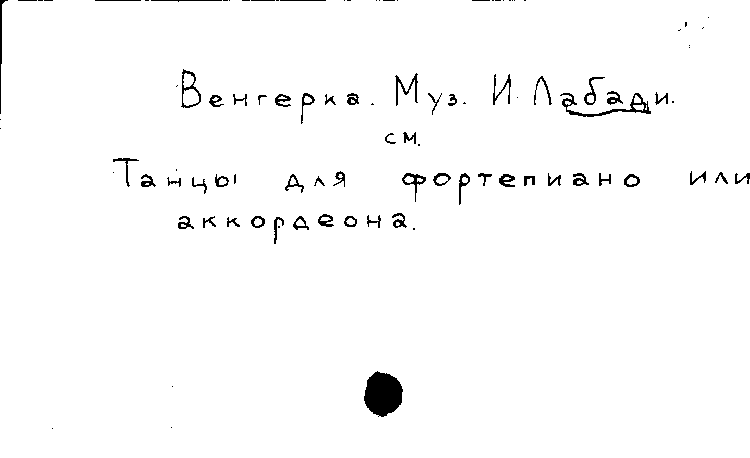 Венгерка. Муз. И. Лабади.
см.
Танцы для фортепиано или
аккордеона.